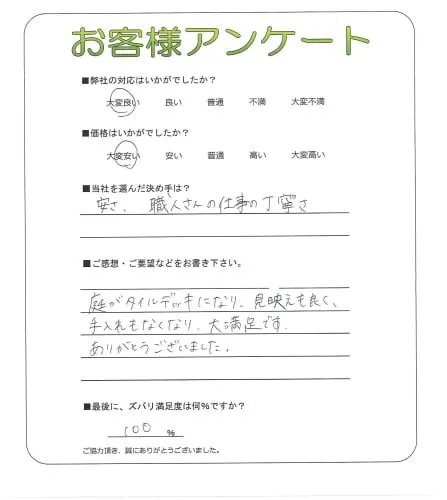 お客様アンケート
■弊社の対応はいかがでしたか？
大変良い 良い 普通 不満 大変不満
■価格はいかがでしたか？
大変安い 安い 普通 高い 大変高い
■当社を選んだ決め手は？
安さ、職人さんの仕事の丁寧さ
■ご感想・ご要望などをお書き下さい。
庭がタイルデッキになり、見映えも良く、
手入れもなくなり、大満足です.
ありがとうございました。
■最後に、ズバリ満足度は何%ですか？
100 %
ご協力頂き、誠にありがとうございました。